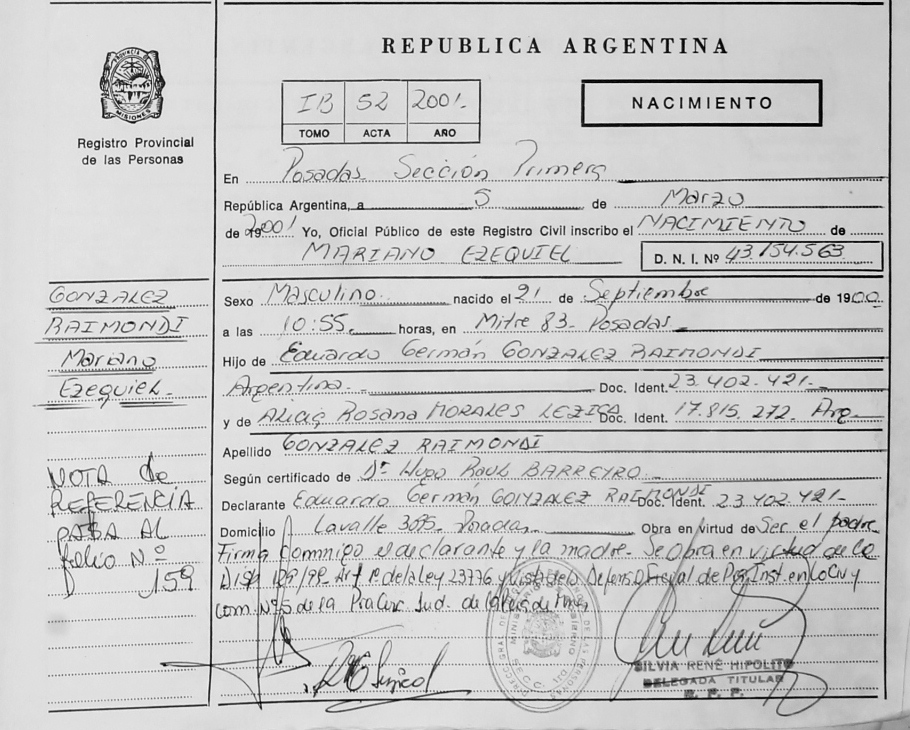 REPUBLICA ARGENTINA
PROVINCIA DE MISIONES
Registro Provincial
de las Personas
IB 52 2001.
TOMO ACTA AÑO
NACIMIENTO
En Posadas Sección Primera
República Argentina, a 5 de Marzo
de 2001 Yo, Oficial Público de este Registro Civil inscribo el NACIMIENTO de
MARIANO EZEQUIEL D. N. I. Nº 43.154.563
GONZALEZ
RAIMONDI
Mariano
Ezequiel
Sexo Masculino nacido el 21 de Septiembre de 1900
a las 10:55 horas, en Mitre 83- Posadas
Hijo de Eduardo Germán GONZALEZ RAIMONDI
Argentina. Doc. Ident. 23.402.421-
y de Alicia Rosana MORALES LEZICA Doc. Ident. 17.815.272. Arg.
Apellido GONZALEZ RAIMONDI
Según certificado de Dr Hugo Raul BARREYRO
Declarante Eduardo Germán GONZALEZ RAIMONDI Doc. Ident. 23.402.421-
Domicilio Lavalle 3095- Posadas Obra en virtud de Ser el padre
Firma Conmigo el declarante y la madre. Se Obra en virtud de la
Disp 129/99- Art 1º de la Ley 23776 y vista de la Defens Oficial de Inst. en lo Civ y
Com. Nº5 de la Pra Circ. Jud. de la
NOTA de
REFERENCIA
PASA AL
folio Nº
159
SILVIA RENE HIPOLITO
DELEGADA TITULAR
R. P. P.